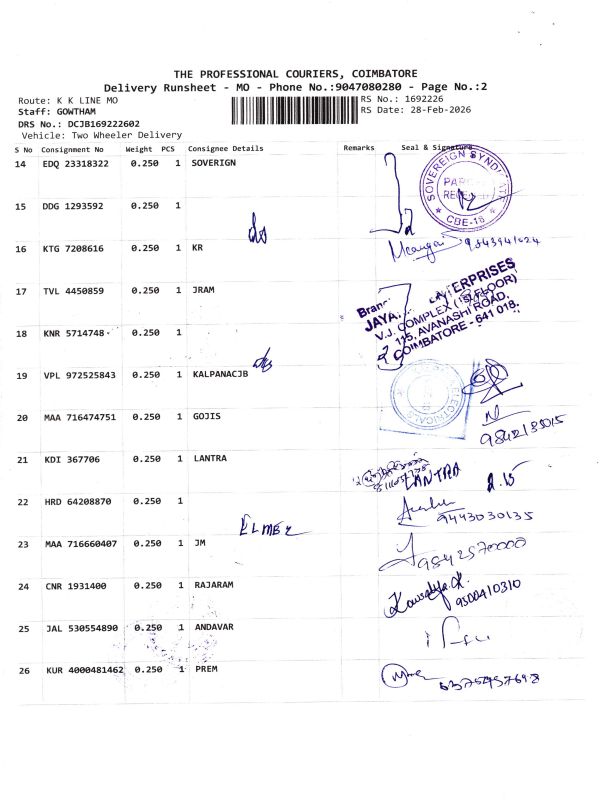 THE PROFESSIONAL COURIERS, COIMBATORE
Delivery Runsheet - MO - Phone No.:9047080280 - Page No.:2
Route: K K LINE MO RS No.: 1692226
Staff: GOWTHAM RS Date: 28-Feb-2026
DRS No.: DCJB169222602
Vehicle: Two Wheeler Delivery
S No Consignment No Weight PCS Consignee Details Remarks Seal & Signature
14 EDQ 23318322 0.250 1 SOVERIGN
SOVEREIGN SYNDICATE
CBE-18
15 DDG 1293592 0.250 1
16 KTG 7208616 0.250 1 KR
9843941624
17 TVL 4450859 0.250 1 JRAM
JAYA ENTERPRISES
V.J. COMPLEX (1st FLOOR)
115, AVANASHI ROAD,
COIMBATORE - 641 018.
18 KNR 5714748 0.250 1
19 VPL 972525843 0.250 1 KALPANACJB
20 MAA 716474751 0.250 1 GOJIS
21 KDI 367706 0.250 1 LANTRA
LANTRA 2.15
22 HRD 64208870 0.250 1
9443030135
ELMER
23 MAA 716660407 0.250 1 JM
9842570000
24 CNR 1931400 0.250 1 RAJARAM
Kowsalya.K.
9500410310
25 JAL 530554890 0.250 1 ANDAVAR
26 KUR 4000481462 0.250 1 PREM
6375457698